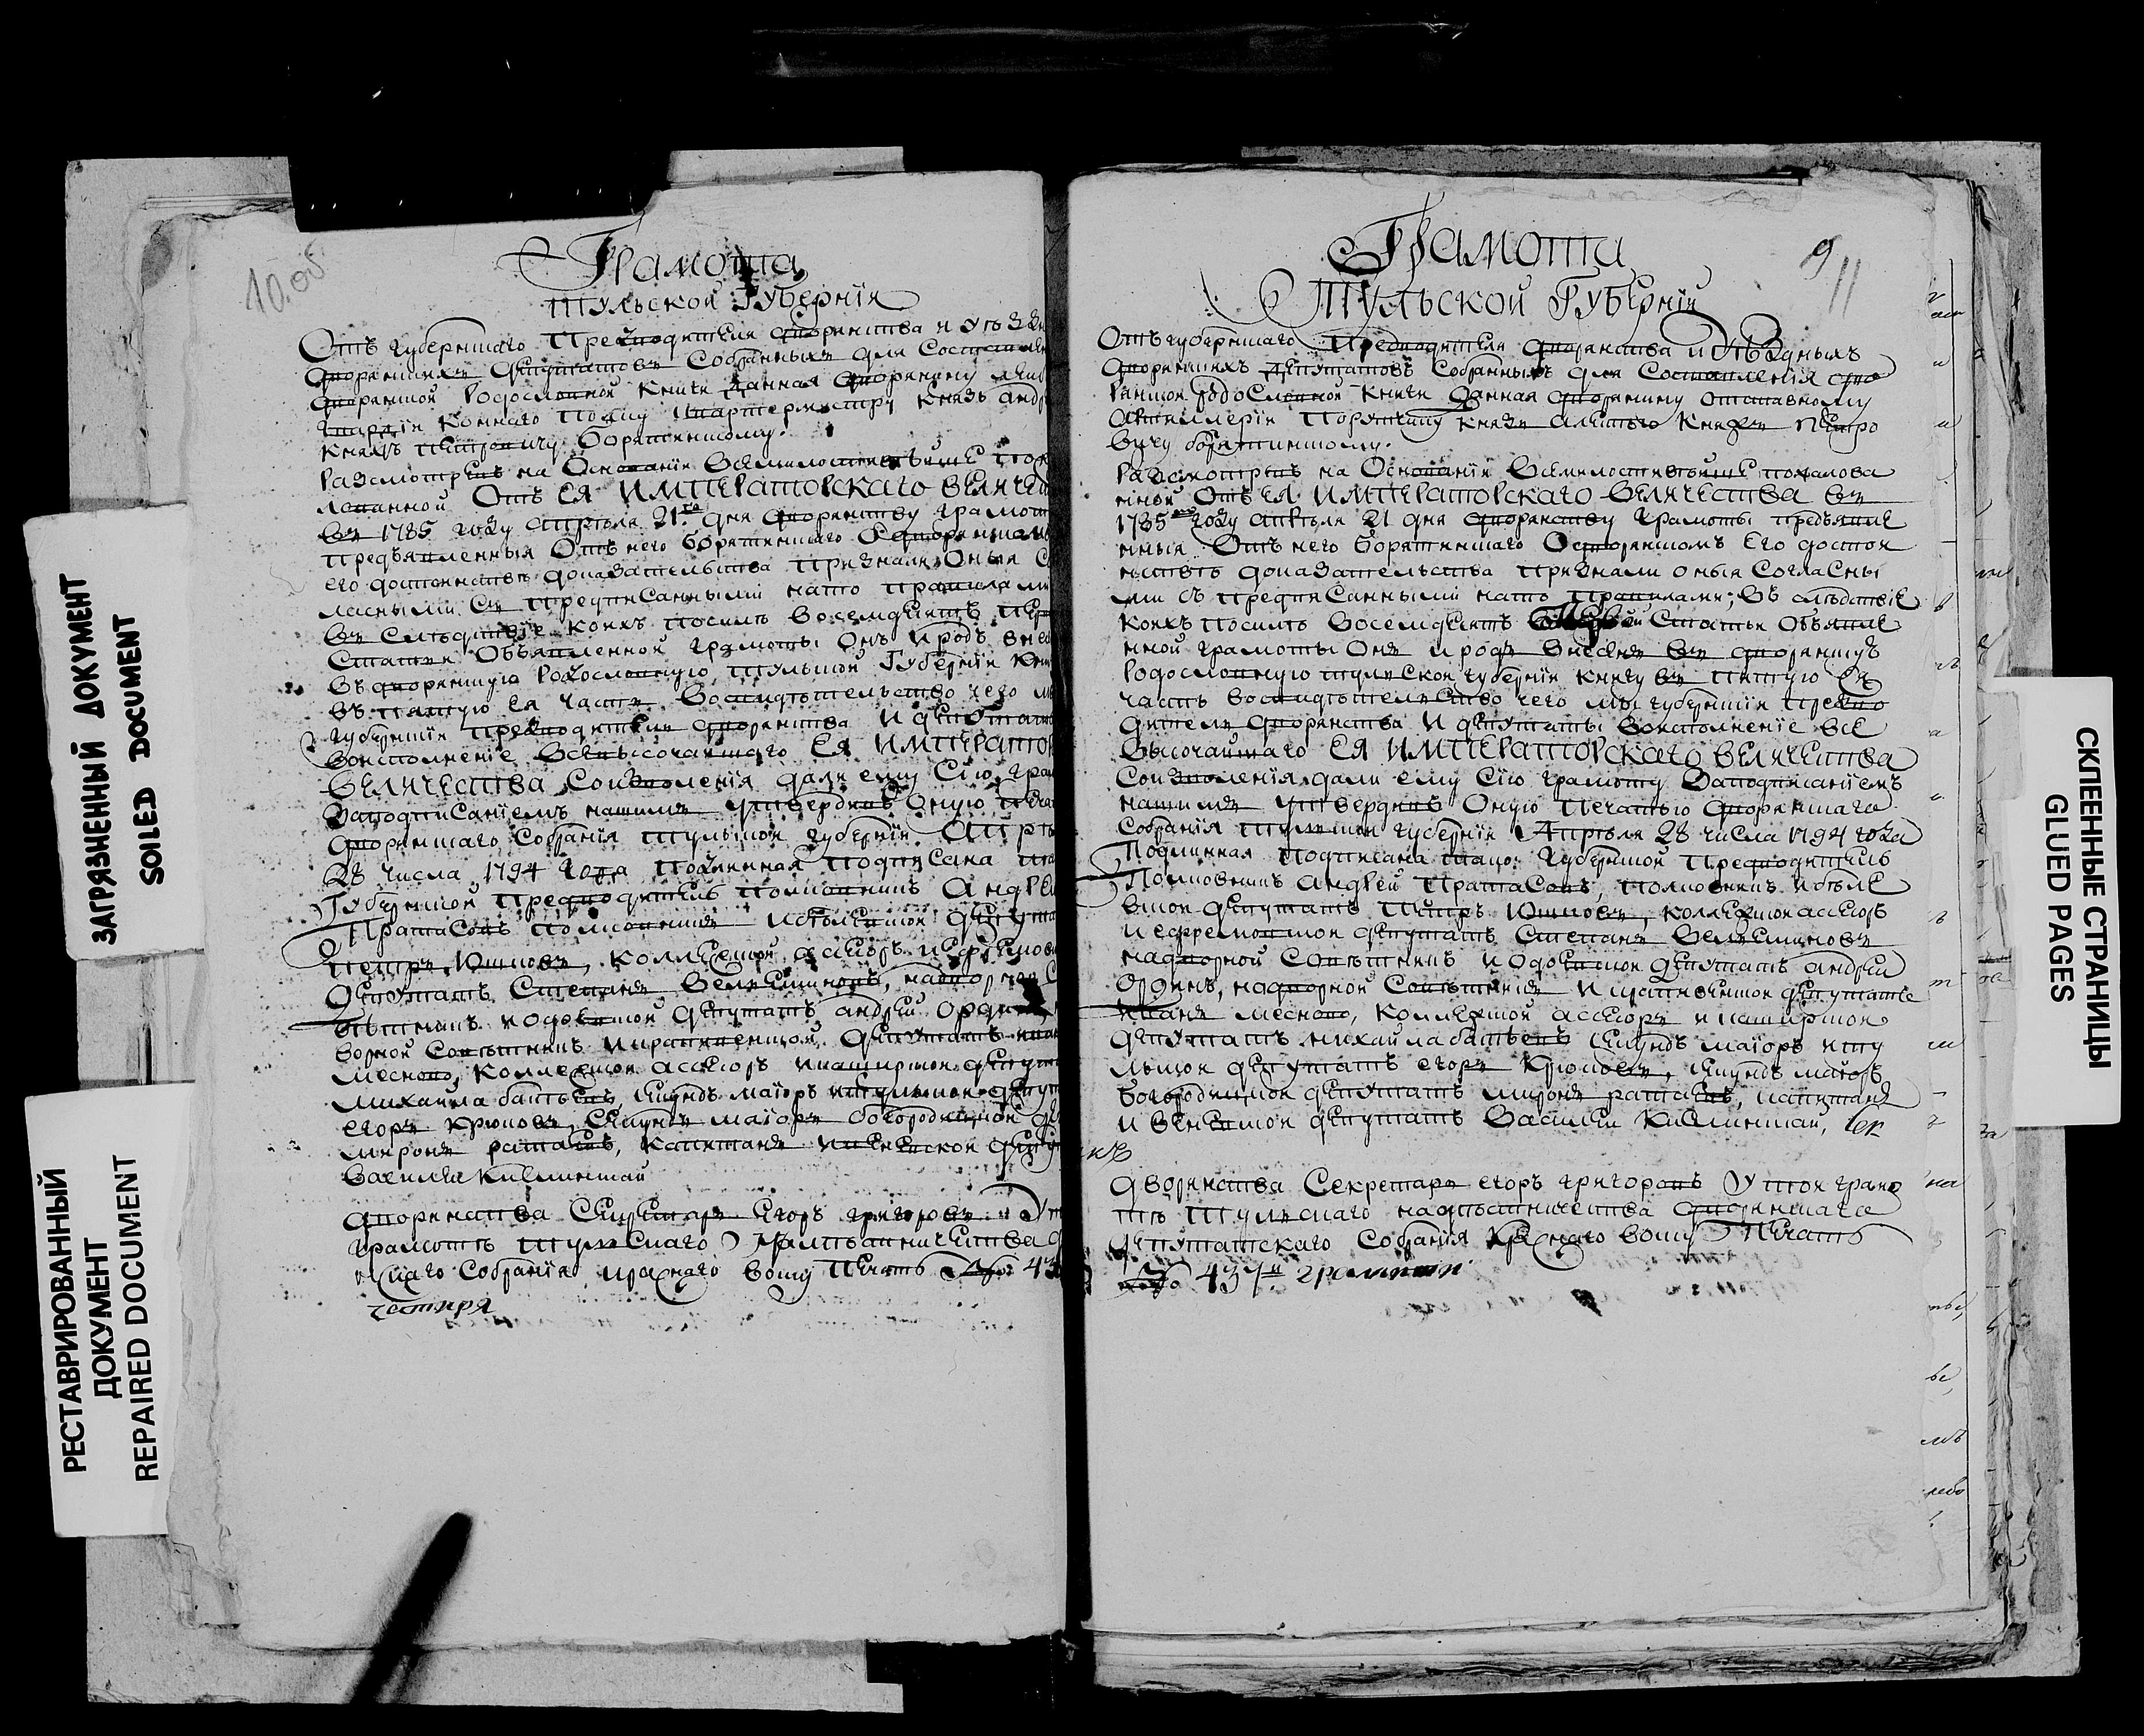 ЗАГРЯЗНЕННЫЙ ДОКУМЕНТ
SOILED DOCUMENT
РЕСТАВРИРОВАННЫЙ
ДОКУМЕНТ
REPAIRED DOCUMENT
10.об
Грамота
Тульской Губернїи
Отъ губернскаго Предводителя дворянства и уѣзд
дворянскихъ депутатовъ Собранныхъ для Составлен
дворянской Родословной Книги данная дворянину лейб
гвардїи Коннаго Полку квартермистру Князь андр
Князь Петровичу борятинскому.
Разсмотревъ на Основанїи Всемилостивѣйше пож
лованной Отъ ЕЯ ИМПЕРАТОРСКАГО ВЕЛИЧЕ
въ 1785 году апрѣля 21го дня дворянству грамот
предъявленныя Отъ него борятинскаго Одворянском
его достоинствѣ доказательства признали Оныя Со
ласными Съ предписанными нато правилами
въ Слѣдствїе коихъ посилѣ восемдесятъ пер
Статьи Объявленной грамоты Онъ и родъ внес
въ дворянскую Родословную тульской Губернїи Кни
въ пятую ея часть. Восвидѣтельство чего мы
губернскїи предводитель дворянства и депутат
воисполненїе Всевысочайшаго ЕЯ ИМПЕРАТОР
ВЕЛИЧЕСТВА Соизволенїя дали ему Сїю гра
Заподписанїемъ нашимъ утвердивъ Оную печа
дворянскаго Собранїя тульской губернїи Апрѣ
28 числа 1794 года подлинная подписана та
Губернской предводитель полковникъ Андрей
Протасовъ полковникъ ибѣлевской депута
петръ Юшковъ, коллежской асесоръ иефремов
депутатъ Степанъ Вельяминовъ, надворной С
вѣтникъ иодоевской депутатъ андрей Орди
ворной Совѣтникъ икрапивенской депутатъ иван
месново, коллежской асесоръ икаширской депут
михаила батьевъ, секундъ маїоръ итульской депут
егоръ крюковъ, секундъ маїоръ богородицкой де
миронъ ратаевъ, капитанъ ивеневской депут
василий Кислинской
дворянства Секретарь егоръ григоровъ У т
грамотѣ тульскаго намѣстничества д
скаго Собранїя краснаго воску печать № 43
четыря
Грамота
9
11
Тульской Губернїи
Отъ губернскаго Предводителя дворянства и уѣздныхъ
дворянскихъ депутатовъ Собранныхъ для Составленїя дво
рянской Родословной Книги данная дворянину отставному
Артиллерїи порутчику князь алексѣю князь Петро
вичу борятинскому.
Разсмотревъ на Основанїи Всемилостивѣйше пожалова
нной Отъ ЕЯ ИМПЕРАТОРСКАГО ВЕЛИЧЕСТВА въ
1785 году апрѣля 21 дня дворянству грамоты предъявле
нныя Отъ него борятинскаго Одворянскомъ Его достои
нствѣ доказательства признали оныя Согласны
ми съ предписанными нато правилами; въ слѣдствїе
коихъ посилѣ восемдесятъ Статьи Объявле
нной грамоты Онъ и родъ внесенъ въ дворянскую
Родословную тульской губернїи книгу въ пятую ея
часть восвидѣтельство чего мы губернскїи предво
дитель дворянства и депутаты воисполненїе Все
высочайшаго ЕЯ ИМПЕРАТОРСКАГО ВЕЛИЧЕСТВА
Соизволенїя дали ему Сїю грамоту Заподписанїемъ
нашимъ утвердивъ Оную печатью дворянскаго
Собранїя тульской губернїи Апрѣля 28 числа 1794 года
Подлинная подписана тако: Губернской предводитель
Полковникъ андрей Протасовъ, полковникъ ибѣле
вской депутатъ петръ Юшковъ, коллежской асесоръ
иефремовской депутатъ Степанъ Вельяминовъ
надворной Совѣтникъ иодоевской депутатъ андрей
Ординъ, надворной Совѣтникъ икрапивенской депутатъ
иванъ месново, коллежской асесоръ икаширской
депутатъ михаила батьевъ секундъ маїоръ иту
льской депутатъ егоръ крюковъ, секундъ маїоръ
богородицкой депутатъ миронъ ратаевъ, капитанъ
и веневской депутатъ василей Кислинской,
дворянства Секретарь егоръ григоровъ У той грамо
тѣ тульскаго намѣстничества дворянскаго
депутатскаго Собранїя краснаго воску печать
№ 437й грамоти
СКЛЕЕННЫЕ СТРАНИЦЫ
GLUED PAGES